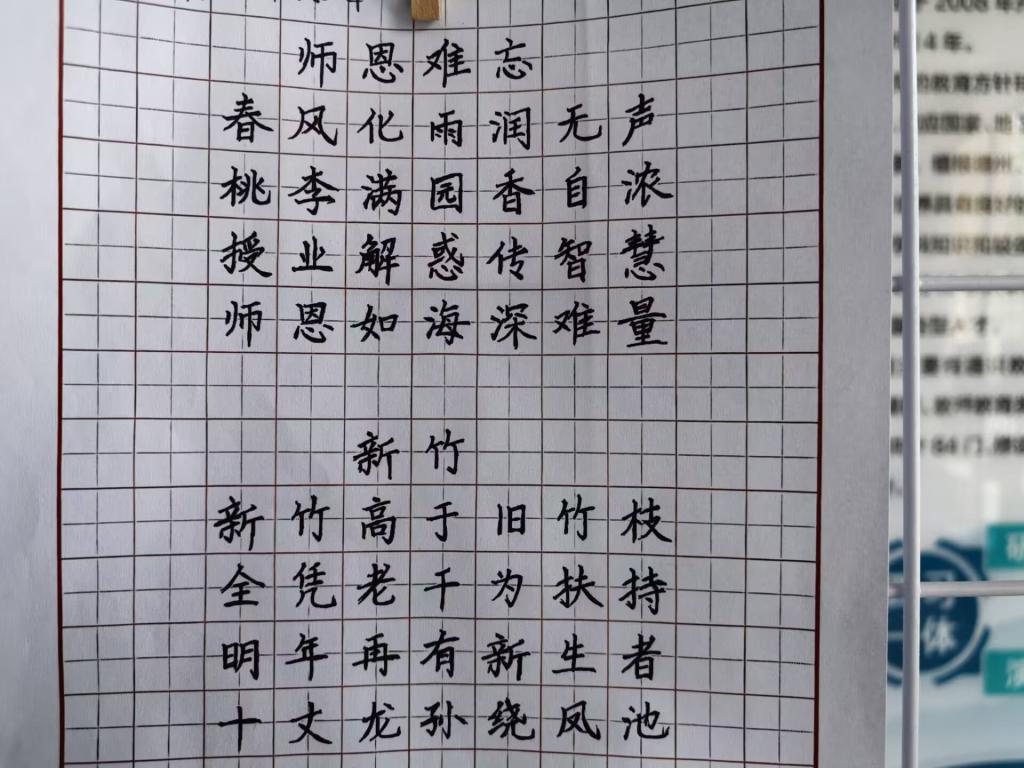 师恩难忘
春风化雨润无声
桃李满园香自浓
授业解惑传智慧
师恩如海深难量
新竹
新竹高于旧竹枝
全凭老干为扶持
明年再有新生者
十丈龙孙绕凤池
2008 年
4 年。
的教育方针
国家、
64 门
体